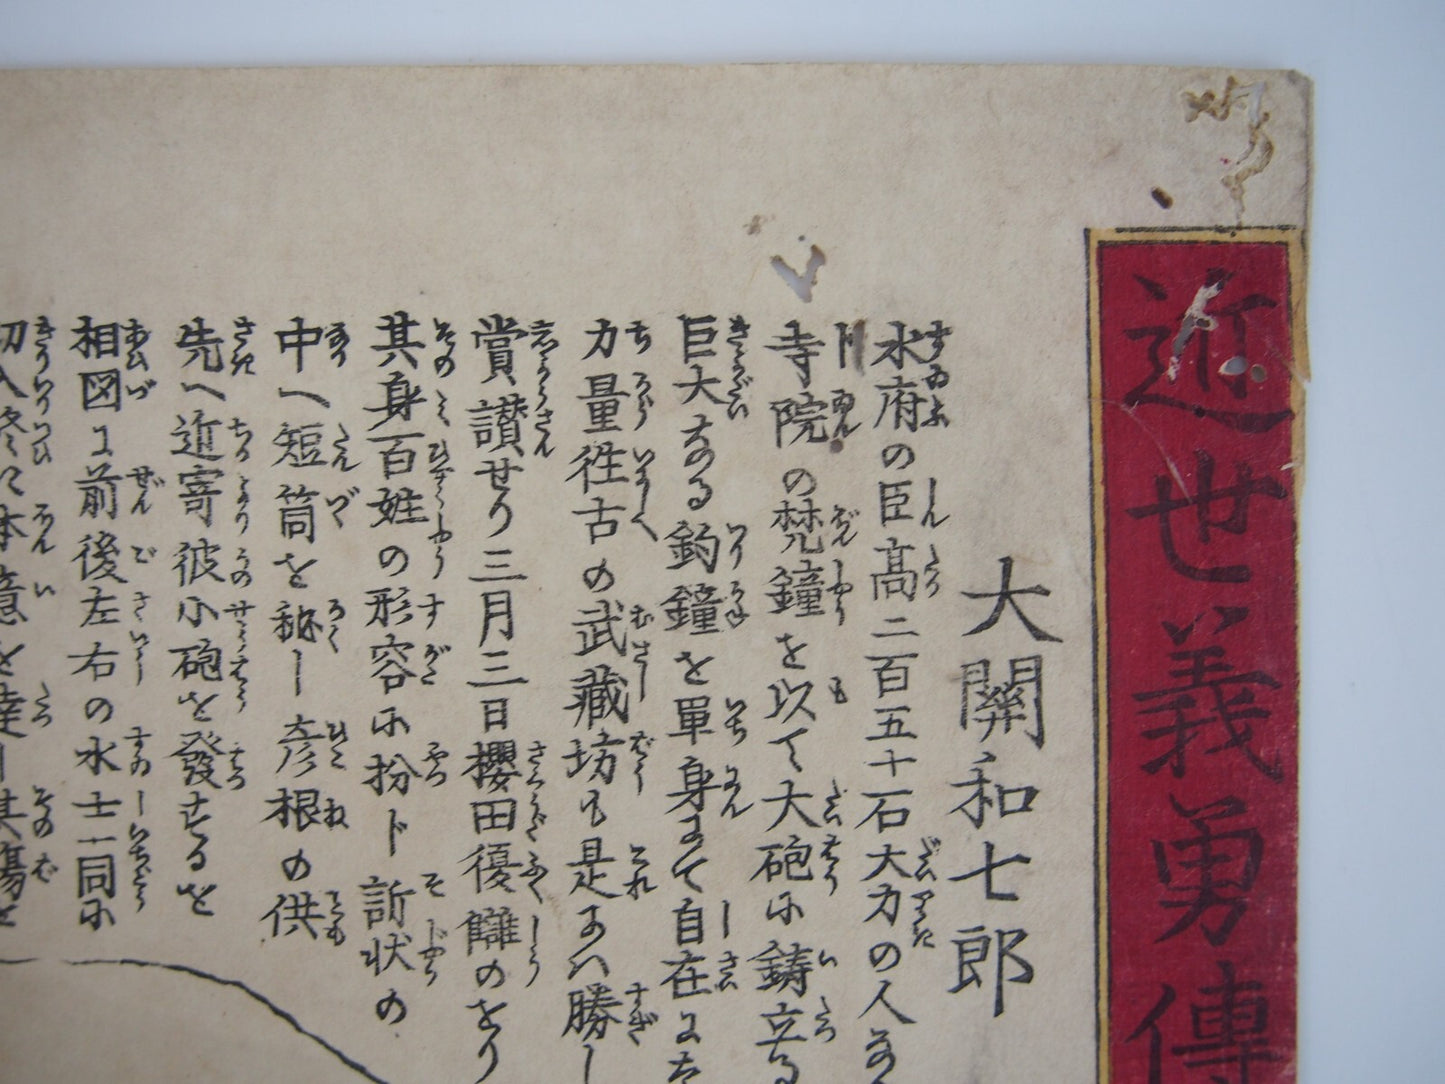 近世義勇傳
大關和七郎
水府の臣高二百五十石大力の人なる
寺院の梵鐘を以て大砲に鋳立る
巨大なる釣鐘を單身にて自在に
力量徃古の武藏坊も是には勝し
賞讃せり三月三日櫻田復讎のをり
其身百姓の形容に扮ト訴状の
中へ短筒を秘し彦根の供
先へ近寄彼小砲を發するを
相図に前後左右の水士一同に
切入終に本意を達し其傷を